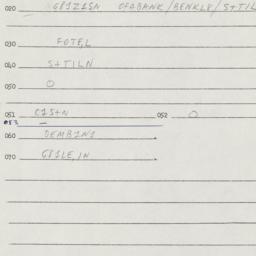 020 G81Z1SN OFABANK/BENKLF/S+TIL
030 FOTEL
040 S+TILN
050 O
051 C1S+N 052 O
053 —
060 DEMB1N1
070 G81LE,IN